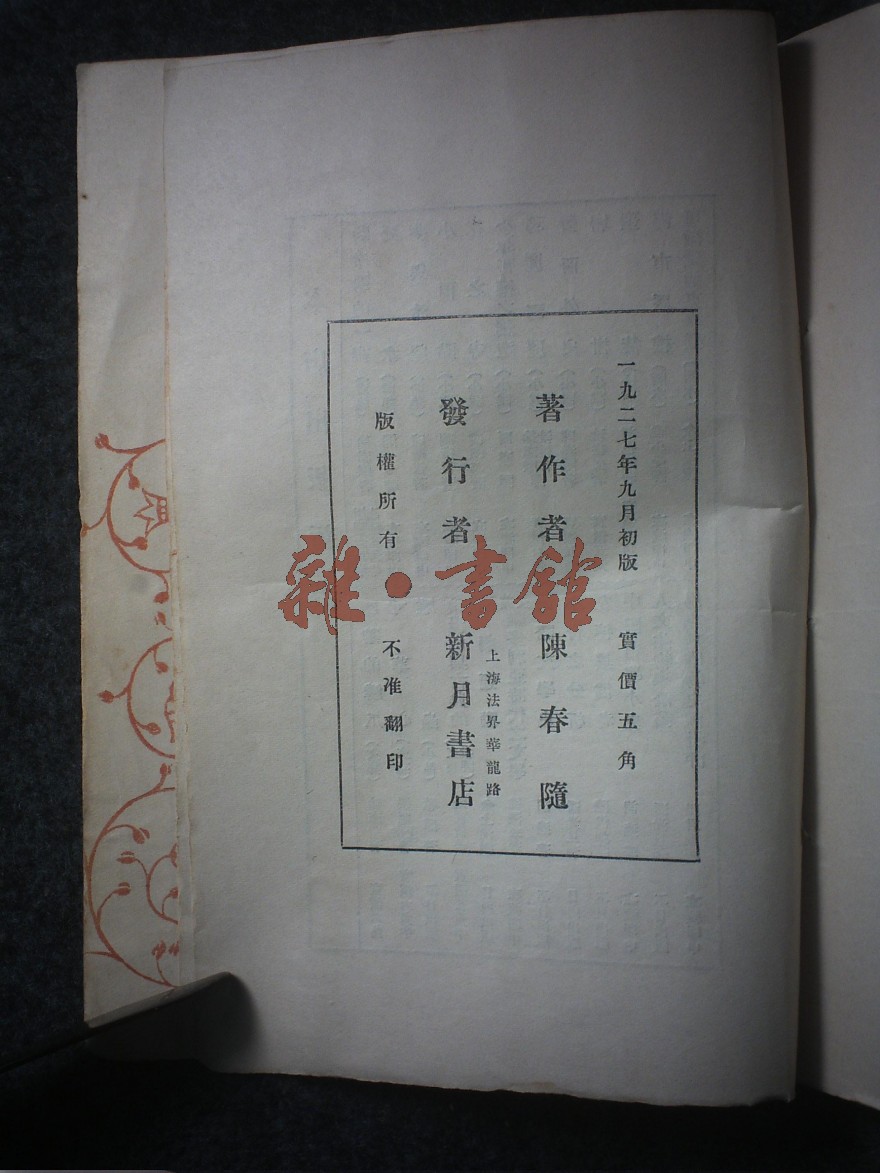 一九二七年九月初版 實價五角
著作者 陳春隨
上海法界華龍路
發行者 新月書店
版權所有 不准翻印
雜·書館